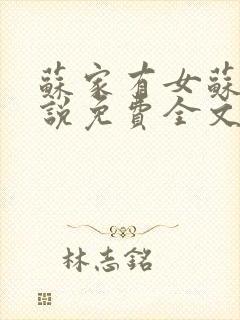 蘇家有女蘇
說免費全文
林志銘